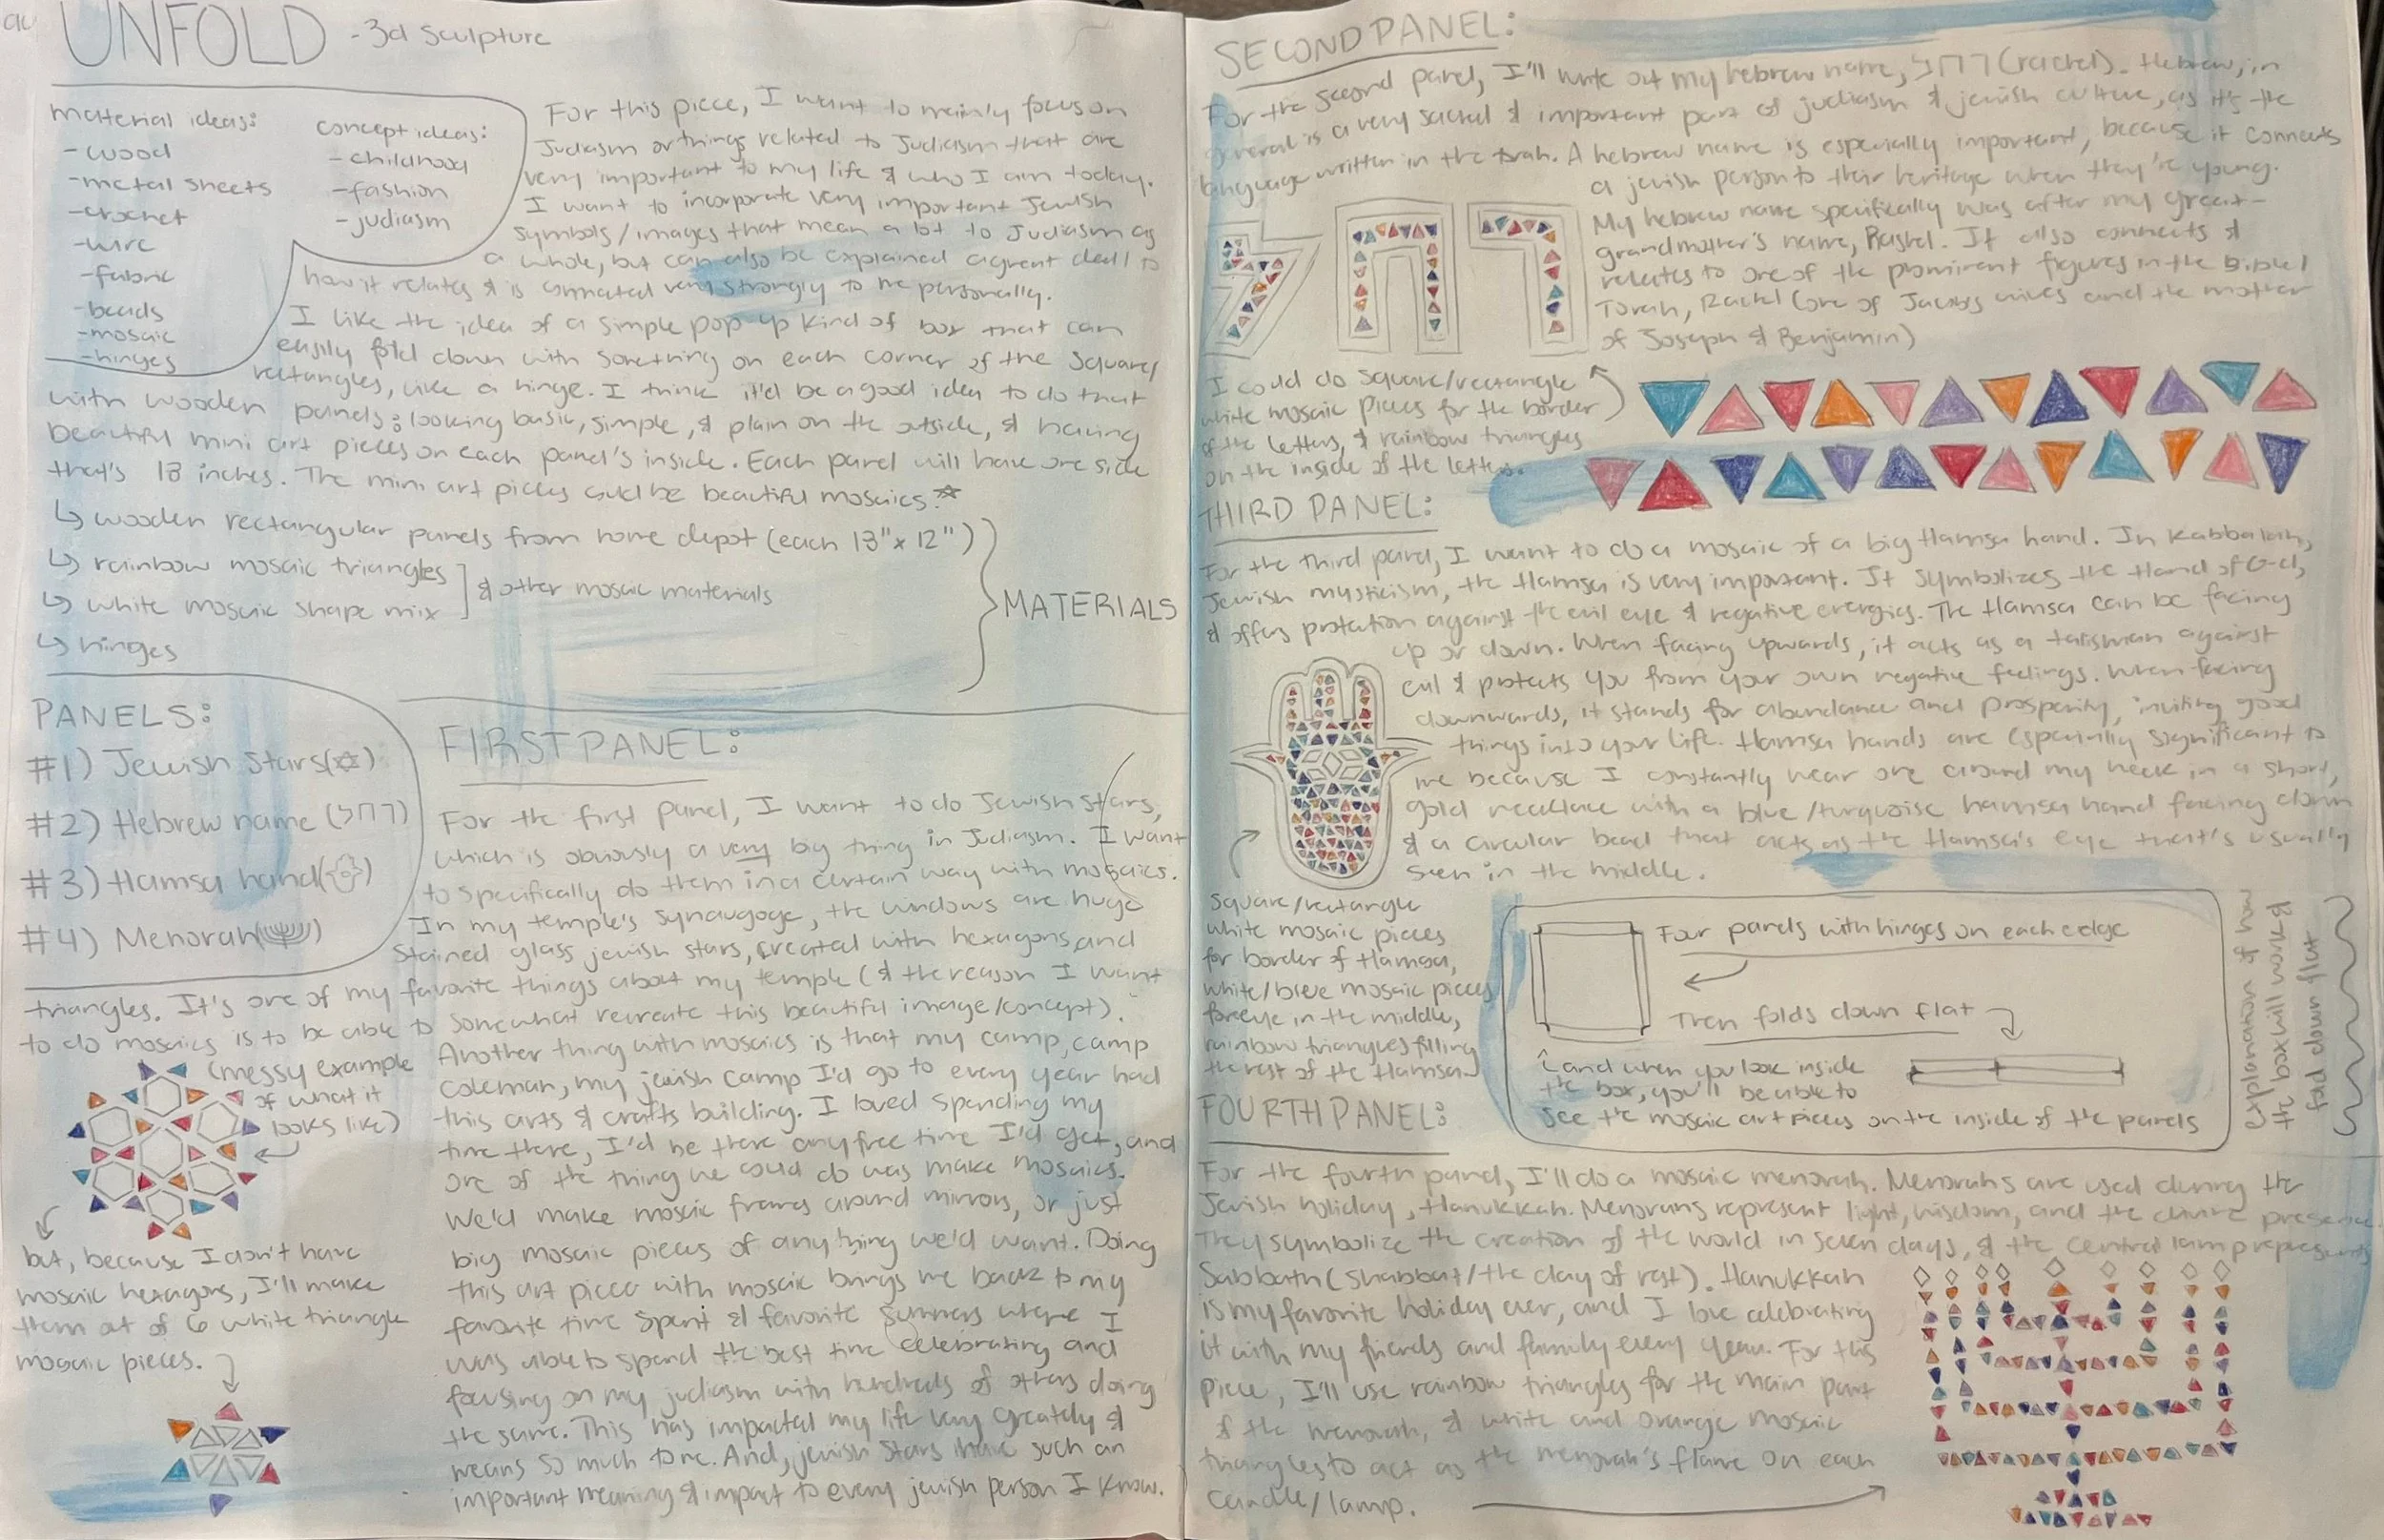 UNFOLD - 3d sculpture
material ideas:
-wood
-metal sheets
-crochet
-wire
-fabric
-beads
-mosaic
-hinges
concept ideas:
-childhood
-fashion
-judiasm
For this piece, I want to mainly focus on
Judiasm or things related to Judiasm that are
very important to my life & who I am today.
I want to incorporate very important Jewish
symbols/images that mean a lot to Judiasm as
a whole, but can also be explained a great deal to
how it relates & is connected very strongly to me personally.
I like the idea of a simple pop-up kind of box that can
easily fold down with something on each corner of the square/
rectangles, like a hinge. I think it'd be a good idea to do that
with wooden panels; looking basic, simple, & plain on the outside, & having
beautiful mini art pieces on each panel's inside. Each panel will have one side
that's 18 inches. The mini art pieces could be beautiful mosaics.☆
↳ wooden rectangular panels from home depot (each 18" x 12")
↳ rainbow mosaic triangles
↳ white mosaic shape mix
& other mosaic materials
↳ hinges
MATERIALS
PANELS:
#1) Jewish Stars(✡)
#2) Hebrew name (רחל)
#3) Hamsa hand()
#4) Menorah()
FIRST PANEL:
For the first panel, I want to do Jewish stars,
which is obviously a very big thing in Judiasm. I want
to specifically do them in a certain way with mosaics.
In my temple's synaugoge, the windows are huge
stained glass jewish stars, created with hexagons and
triangles. It's one of my favorite things about my temple (& the reason I want
to do mosaics is to be able to somewhat recreate this beautiful image/concept).
Another thing with mosaics is that my camp, camp
Coleman, my jewish camp I'd go to every year had
this arts & crafts building. I loved spending my
time there, I'd be there any free time I'd get, and
one of the thing we could do was make mosaics.
We'd make mosaic frames around mirrors, or just
big mosaic pieces of anything we'd want. Doing
this art piece with mosaic brings me back to my
favorite time spent & favorite summers where I
was able to spend the best time celebrating and
focusing on my judiasm with hundreds of others doing
the same. This has impacted my life very greatly &
means so much to me. And, jewish stars have such an
important meaning & impact to every jewish person I know.
(messy example
of what it
looks like)
but, because I don't have
mosaic hexagons, I'll make
them out of 6 white triangle
mosaic pieces.
SECOND PANEL:
For the second panel, I'll write out my hebrew name, רחל (rachel). Hebrew, in
general is a very sacred & important part of judiasm & jewish culture, as it's the
language written in the torah. A hebrew name is especially important, because it connects
a jewish person to their heritage when they're young.
My hebrew name specifically was after my great-
grandmother's name, Rashel. It also connects &
relates to one of the prominent figures in the Bible/
Torah, Rachel (one of Jacobs wives and the mother
of Joseph & Benjamin)
רחל
I could do square/rectangle
white mosaic pieces for the border
of the letters, & rainbow triangles
on the inside of the letters.
THIRD PANEL:
For the third panel, I want to do a mosaic of a big Hamsa hand. In Kabbalah,
Jewish mysticism, the Hamsa is very important. It symbolizes the Hand of G-d,
& offers protation against the evil eye & negative energies. The Hamsa can be facing
up or down. When facing upwards, it acts as a talisman against
evil & protects you from your own negative feelings. When facing
downwards, it stands for abundance and prosperity, inviting good
things into your life. Hamsa hands are especially significant to
me because I constantly wear one around my neck in a short,
gold necklace with a blue/turquoise hamsa hand facing down
& a circular bead that acts as the Hamsa's eye that's usually
seen in the middle.
square/rectangle
white mosaic pieces
for border of Hamsa,
white/blue mosaic pieces
for eye in the middle,
rainbow triangles filling
the rest of the Hamsa
Four panels with hinges on each edge
Then folds down flat
↑ and when you look inside
the box, you'll be able to
see the mosaic art pieces on the inside of the panels
explanation of how
the box will work &
fold down flat
FOURTH PANEL:
For the fourth panel, I'll do a mosaic menorah. Menorahs are used during the
Jewish holiday, Hanukkah. Menorahs represent light, wisdom, and the divine presence.
They symbolize the creation of the world in seven days, & the central lamp represents
Sabbath (Shabbat/the day of rest). Hanukkah
is my favorite holiday ever, and I love celebrating
it with my friends and family every year. For this
piece, I'll use rainbow triangles for the main part
of the menorah, & white and orange mosaic
triangles to act as the menorah's flame on each
candle/lamp.